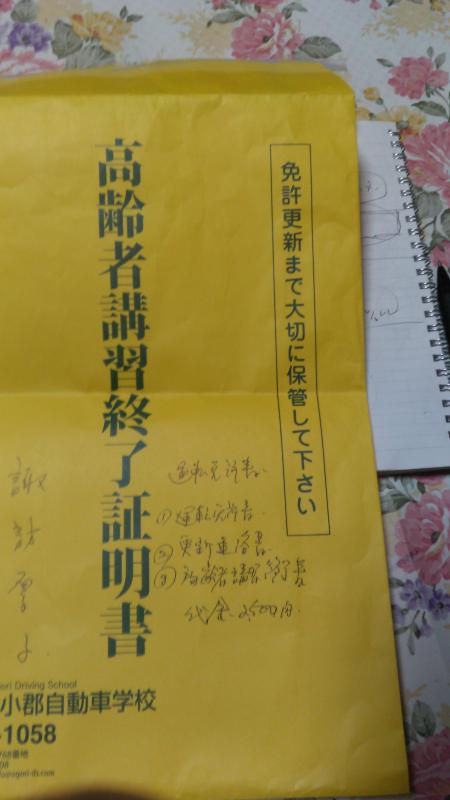 免許更新まで大切に保管して下さい
高齢者講習終了証明書
運転免許書
①運転免許書
②更新連絡書
③高齢者講習終了書
代金 2,500円
ori Driving School
小郡自動車学校
-1058
768番地